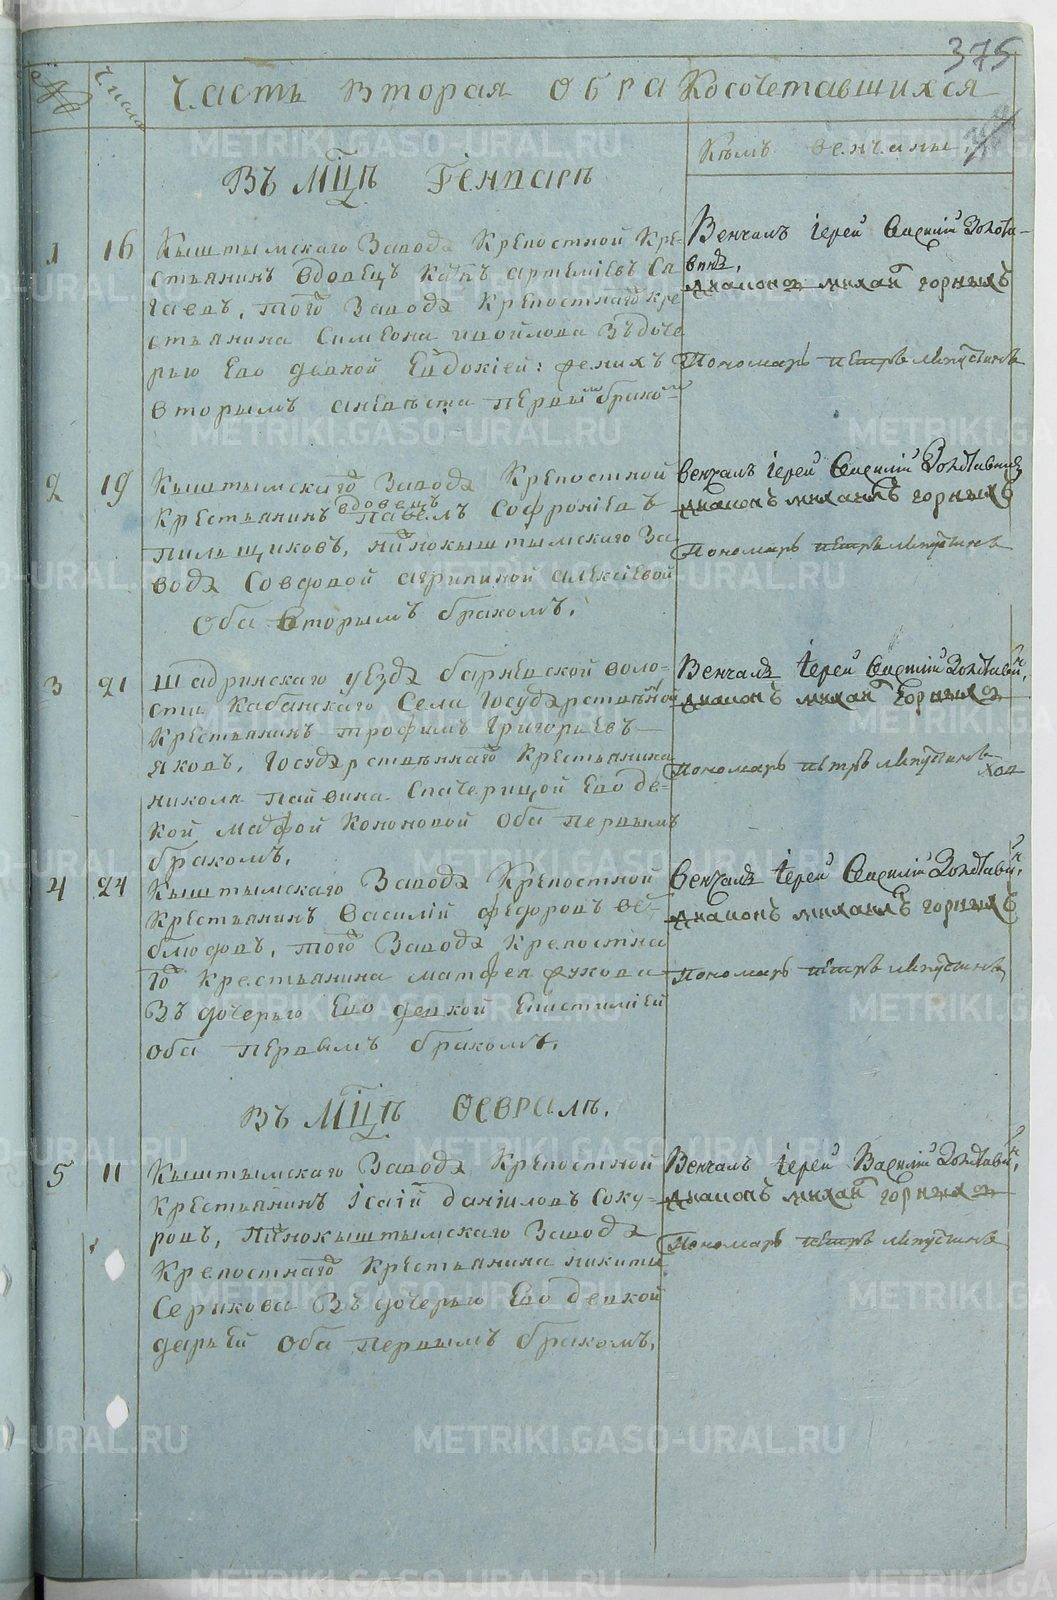 375
№
Числа
Часть вторая о бракосочетавшихся
Кѣмъ венчаны
Въ мцѣ Генварѣ
1 16 Кыштымскаго Завода Крепостной Кре-
стьянинъ вдовецъ артемиевъ Са
гаевъ, того Завода Крепостнаго кре
стьянина Симеона Въ доче
рью Ево девкой Евдокіей: женихъ
вторымъ аневѣста первымъ бракомъ
Венчалъ Іерей Василій Золотавинъ,
диаконъ михаилъ горныхъ
Пономарь петръ лапустинъ
2 19 Кыштымскаго Завода Крепостной
Крестьянинъ вдовецъ павелъ Софроніевъ
Пильщиковъ, нижнокыштымскаго За
вода Совдовой агрипиной алексіевой
Оба вторымъ бракомъ.
Венчалъ Іерей Василій Золотавинъ
диаконъ михаилъ горныхъ
Пономарь петръ лапустинъ
3 21 Шадринскаго уезда барневской воло-
сти Кабанскаго Села Государственной
Крестьянинъ трофимъ Григорьевъ
яковъ, Государственнаго Крестьянина
никола пайвина Спачерицой Ево де-
кой марфой Кононовой Оба первымъ
бракомъ.
Венчалъ Іерей Василій Золотавинъ,
диаконъ михаилъ горныхъ
Пономарь петръ лапустинъ
4 24 Кыштымскаго Завода Крепостной
Крестьянинъ Василій федоровъ ве-
блюдовъ, того Завода Крепостна
го Крестьянина матфея жукова
Въ дочерью Ево девкой Епистиміей
Оба первымъ бракомъ.
Венчалъ Іерей Василій Золотавинъ,
диаконъ михаилъ горныхъ
Пономарь петръ лапустинъ
Въ мцѣ Февралѣ.
5 11 Кыштымскаго Завода Крепостной
Крестьянинъ Ісаій даніиловъ Соку-
ровъ, Нижнокыштымскаго Завода
Крепостнаго Крестьянина никиты
Серикова Въ дочерью Ево девкой
дарьей Оба первымъ бракомъ.
Венчалъ Іерей Василій Золотавинъ,
диаконъ михаилъ горныхъ
Пономарь петръ лапустинъ
METRIKI.GASO-URAL.RU